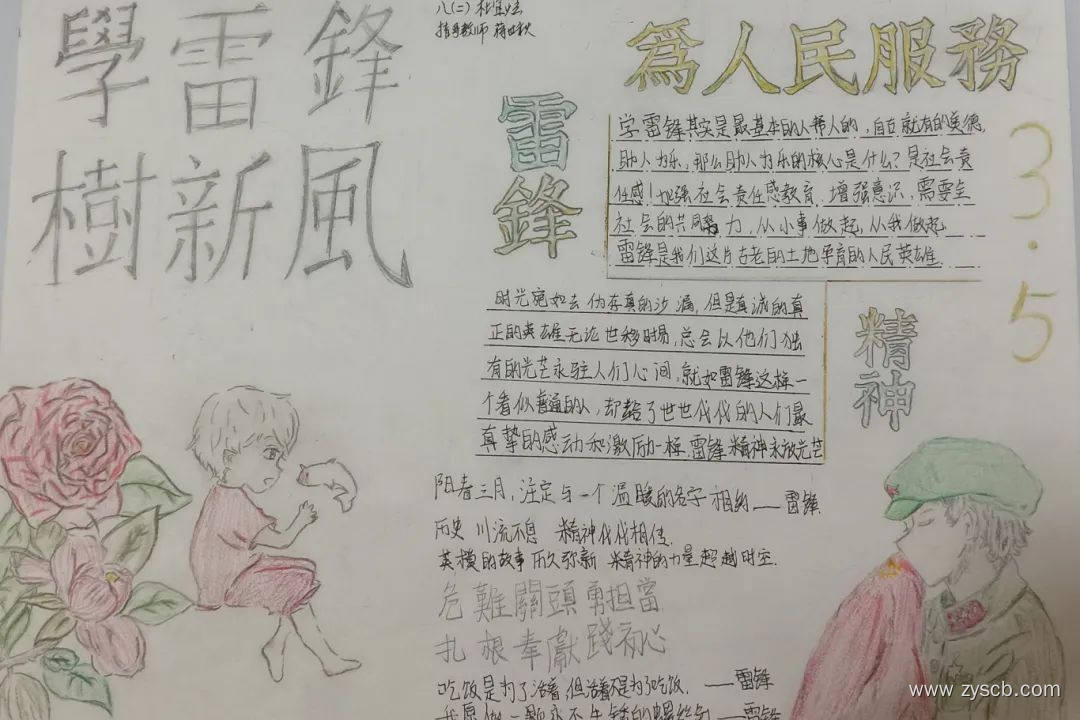 學雷鋒
樹新風
八(二)
指导教师 蒋
為人民服務
雷鋒
学雷锋其实是最基本的人帮人的,自古就有的美德,
助人为乐,那么助人为乐的核心是什么?是社会责
任感!加强社会责任感教育,增强意识,需要全
社会的共同努力,从小事做起,从我做起
雷锋是我们这片古老的土地孕育的人民英雄
3.5
时光宛如去伪存真的沙漏,但是真诚的真
正的英雄无论世移时易,总会以他们独
有的光芒永驻人们心间,就如雷锋这样一
个看似普通的人,却给了世世代代的人们最
真挚的感动和激励一样.雷锋精神永放光芒
精神
阳春三月,注定与一个温暖的名字相约——雷锋
历史川流不息 精神代代相传.
英模的故事历久弥新 精神的力量超越时空.
危難關頭勇担當
扎根奉獻踐初心
吃饭是为了活着,但活着不是为了吃饭.——雷锋
我愿做一颗永不生锈的螺丝钉——雷锋
www.zyscb.com